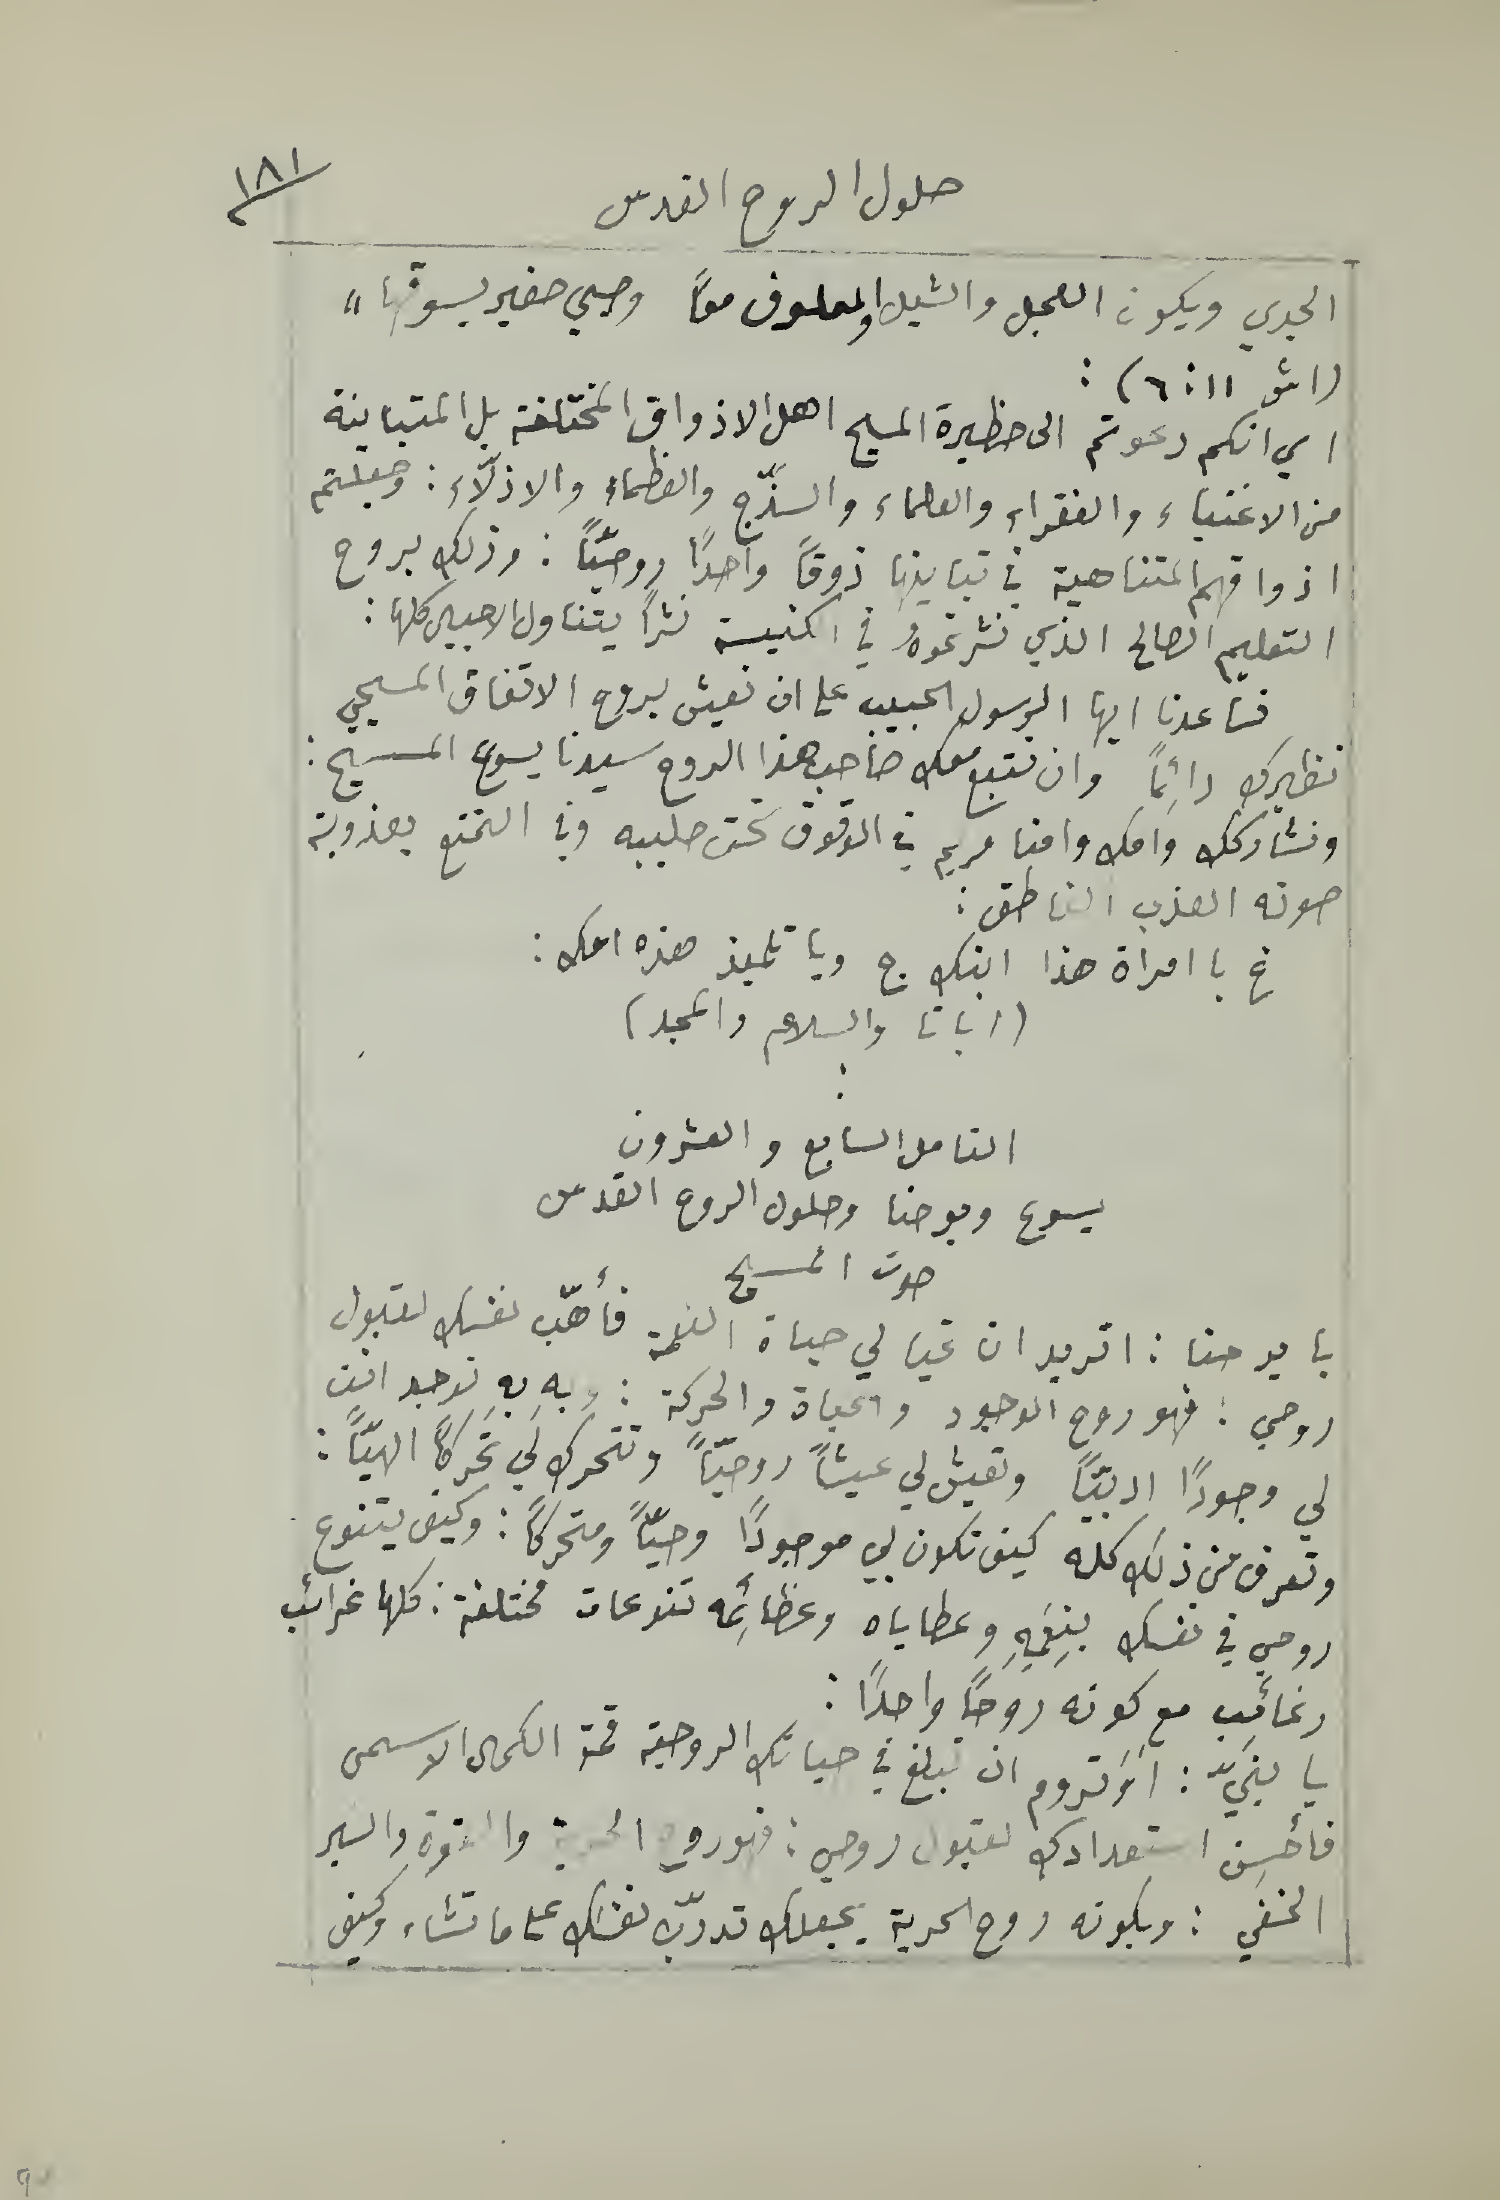 ١٨١
حلول الروح القدس
الجدي ويكون العجل والشبل والمعلوف معًا وصبي صغير يسوقها "
(اش ١١: ٦) :
اي انكم دعوتم الى حظيرة المسيح اهل الاذواق المختلفة بل المتباينة
من الاغنياء والفقراء والعلماء والسذّج والعظماء والاذلّاء : وجعلتم
اذواقهم المتناهية في تباينها ذوقًا واحدًا روحيًّا : وذلك بروح
التعليم الصالح الذي نشرتموه في الكنيسة نشرًا يتناول الاجيال كلها :
فساعدنا ايها الرسول الحبيب على ان نعيش بروح الاتفاق المسيحي
نظيرك دائمًا وان نتبع معك صاحب هذا الروح سيدنا يسوع المسيح :
ونشاركك وامك وامنا مريم في الوقوف تحت صليبه وفي التمتع بعذوبة
صوته العذب الناطق :
غ يا امراة هذا ابنك ج ويا تلميذ هذه امك :
(ابانا والسلام والمجد)
التامل السابع والعشرون
يسوع ويوحنا وحلول الروح القدس
صوت المسيح
يا يوحنا : اتريد ان تحيا لي حياة النعمة فأهّب نفسك لقبول
روحي : فهو روح الوجود والحياة والحركة : وبه بهِ توجد انت
لي وجودًا ادبيًّا وتعيش لي عيشًا روحيًّا وتتحرك لي تحركًا الهيًّا :
وتعرف من ذلك كله كيف تكون لي موجودًا وحيًّا ومتحركًا : وكيف يتنوع
روحي في نفسك بنِعَمِهِ وعطاياه وعظائمه تنوعات مختلفة : كلها غرائب
رغائب مع كونه روحًا واحدًا :
يا بنيّ : أوَتروم ان تبلغ في حياتك الروحية قمة الكمال الاسمى
فأحسِن استعدادك لقبول روحي : فهو روح الحرية والقوة والسر
الخفي : وبكونه روح الحرية يجعلك تدرّب نفسك على ما تشاء وكيف